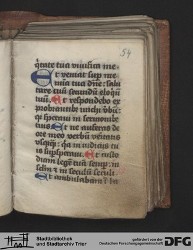 54
quitate tua viuifica me.
Et veniat sup me mi
a tua dñe: salu
tare tuũ secundũ eloqui
tuũ. Et respondebo ex
probrantibꝰ michi vbũ:
q̃ speraui in sermonibꝰ
tuis. Et ne auferas de
ore meo verbũ veritatis
vsq̃q̃q̃: q̃a in iudicijs tu
is supsperaui. Et custo
diam legẽ tuã semp: in
sclm ⁊ in seculũ seculi.
Et ambulabam in
Stadtbibliothek
und Stadtarchiv Trier
gefördert von der
DFG
Deutschen Forschungsgemeinschaft